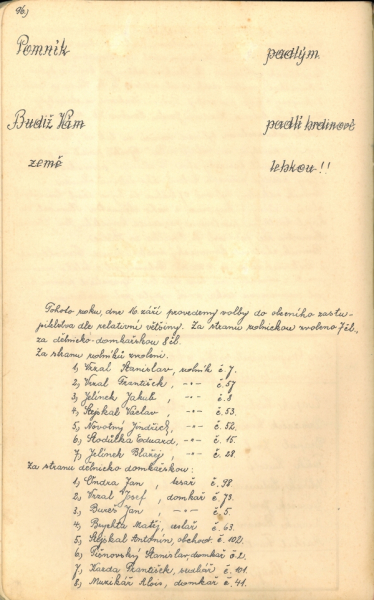 96)
Pomník padlým
Budiž Vám padlí hrdinové
země lehkou!!
Tohoto roku, dne 16. září provedeny volby do obecního zastu-
pitelstva dle relativní většiny. Za stranu rolnickou zvoleno 7 čl.
za dělnicko-domkářskou 8 čl.
Za stranu rolníků zvoleni:
1, Vrzal Stanislav, rolník č. 7.
2, Vrzal František, -"- č. 57
3, Jelínek Jakub, -"- č. 3
4, Stejskal Václav, -"- č. 53.
5, Novotný Jindřich, -"- č. 52.
6, Stodůlka Eduard, -"- č. 15.
7, Jelínek Blažej, -"- č. 28.
Za stranu dělnicko domkářskou:
1, Ondra Jan, tesař č. 98
2, Vrzal Josef, domkař č. 73.
3, Bureš Jan, -"- č. 5.
4, Matěj, č. 63.
5, Stejskal Antonín, obchod. č. 102.
6, Stanislav, domkař č. 2.
7, František, č. 101.
8, Muzikář Alois, domkař č. 41.